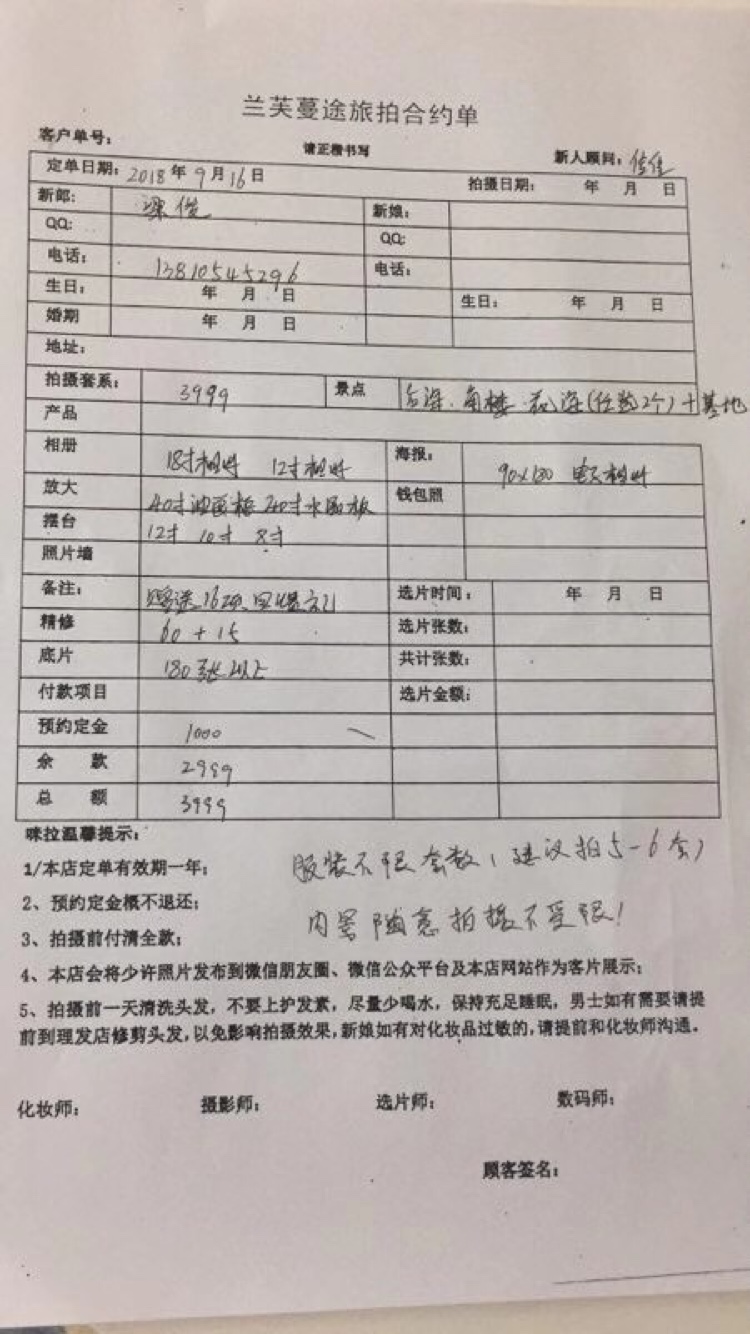 兰芙蔓途旅拍合约单
客户单号： 请正楷书写 新人顾问：佳佳
定单日期：2018年9月16日 拍摄日期： 年 月 日
新郎: 梁俊 新娘：
QQ: QQ:
电话： 13810545296 电话：
生日： 年 月 日 生日： 年 月 日
婚期 年 月 日
地址：
拍摄套系： 3999 景点 后海、角楼、花海(任选2个)+基地
产品
相册 18寸相册 12寸相册 海报： 90x180
放大 40寸油画框 40寸水晶板 钱包照
摆台 12寸 10寸 8寸
照片墙
备注： 赠送16 选片时间： 年 月 日
精修 60+15 选片张数：
底片 180张以上 共计张数：
付款项目 选片金额：
预约定金 1000
余 款 2999
总 额 3999
咪拉温馨提示：
1/本店定单有效期一年； 服装不限套数(建议拍5-6套)
2、预约定金概不退还；
内景随意拍摄不受限！
3、拍摄前付清全款；
4、本店会将少许照片发布到微信朋友圈、微信公众平台及本店网站作为客片展示；
5、拍摄前一天清洗头发，不要上护发素，尽量少喝水，保持充足睡眠，男士如有需要请提
前到理发店修剪头发，以免影响拍摄效果，新娘如有对化妆品过敏的，请提前和化妆师沟通。
化妆师： 摄影师： 选片师： 数码师：
顾客签名：